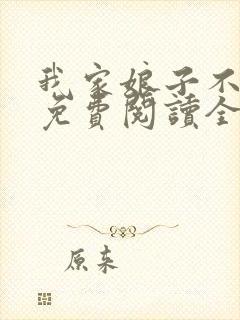 我家娘子不
免費閱讀全
原來